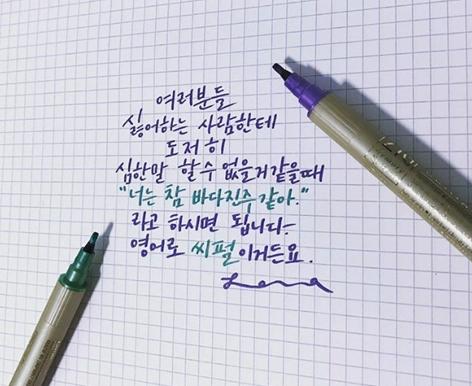 여러분들
싫어하는 사람한테
도저히
심한말 할 수 없을거 같을때
"너는 참 바다진주 같아."
라고 하시면 됩니다-
영어로 씨펄이거든요.
Lena